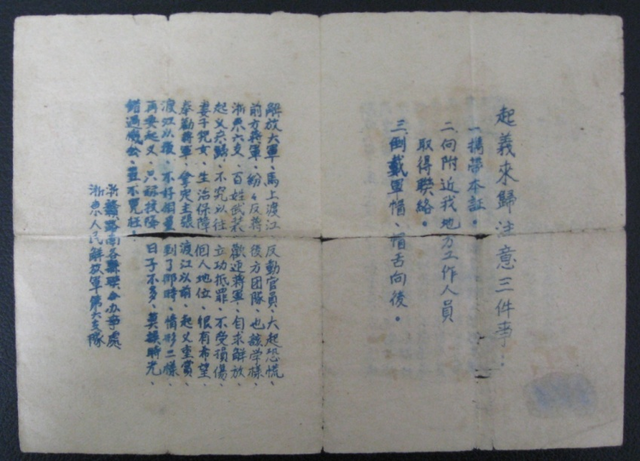 起義來歸注意三件事：
一、攜帶本証。
二、向附近我地方工作人員
取得聯絡。
三、倒戴軍帽、帽舌向後。
解放大軍、馬上渡江、反動官員、大起恐慌、
前方蔣軍、紛々反蔣、後方團隊、也該学樣、
浙東六支、百姓武裝、歡迎蔣軍、自求解放、
起义來歸、不究以往、立功抵罪、不受損傷、
妻子兒女、生活保障、個人地位、很有希望、
奉勸蔣軍、拿定主張、渡江以前、起义重賞、
渡江以後、不好商量、到了那時、情形二樣、
再要起义、只好投降、日子不多、莫誤時光、
錯過機会、豈不冤枉。
路南各縣联合办事處
浙東人民解放軍第六支隊